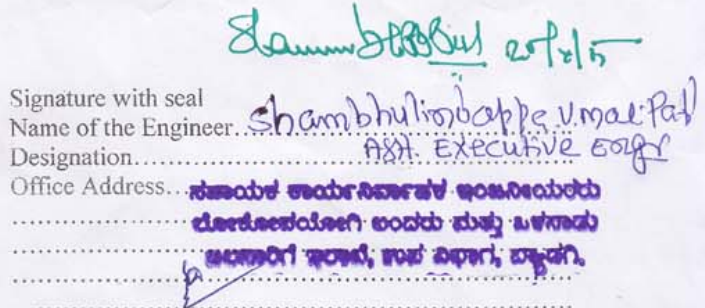 25/4/15
Signature with seal
Name of the Engineer...Shambhulingappa V. Mali Patil
Designation............Asst. Executive Engr
Office Address...ಸಹಾಯಕ ಕಾರ್ಯನಿರ್ವಾಹಕ ಇಂಜನೀಯರರು
ಲೋಕೋಪಯೋಗಿ ಬಂದರು ಮತ್ತು ಒಳನಾಡು
ಜಲಸಾರಿಗೆ ಇಲಾಖೆ, ಉಪ ವಿಭಾಗ, ಬ್ಯಾಡಗಿ.